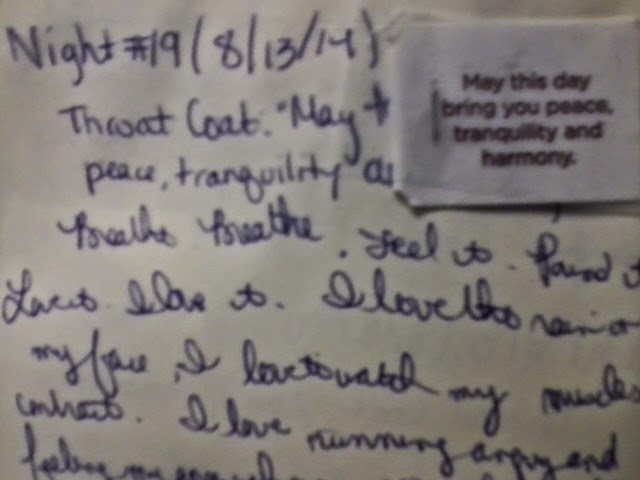 Night #19 (8/13/14)
May this day
bring you peace,
tranquility and
harmony.
Throat Coat. "May t
peace, tranquility a
Breathe Breathe. Feel it. Found
Love it. I love it. I love the rain on
my face, I love to watch my muscles
contract. I love running angry and
feeling my